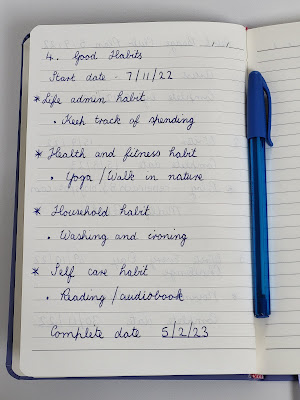 4. Good Habits
Start date - 7/11/22
* Life admin habit
• Keep track of spending
* Health and fitness habit
• Yoga / Walk in nature
* Household habit
• Washing and ironing
* Self care habit
• Reading / audiobook
Complete date 5/2/23